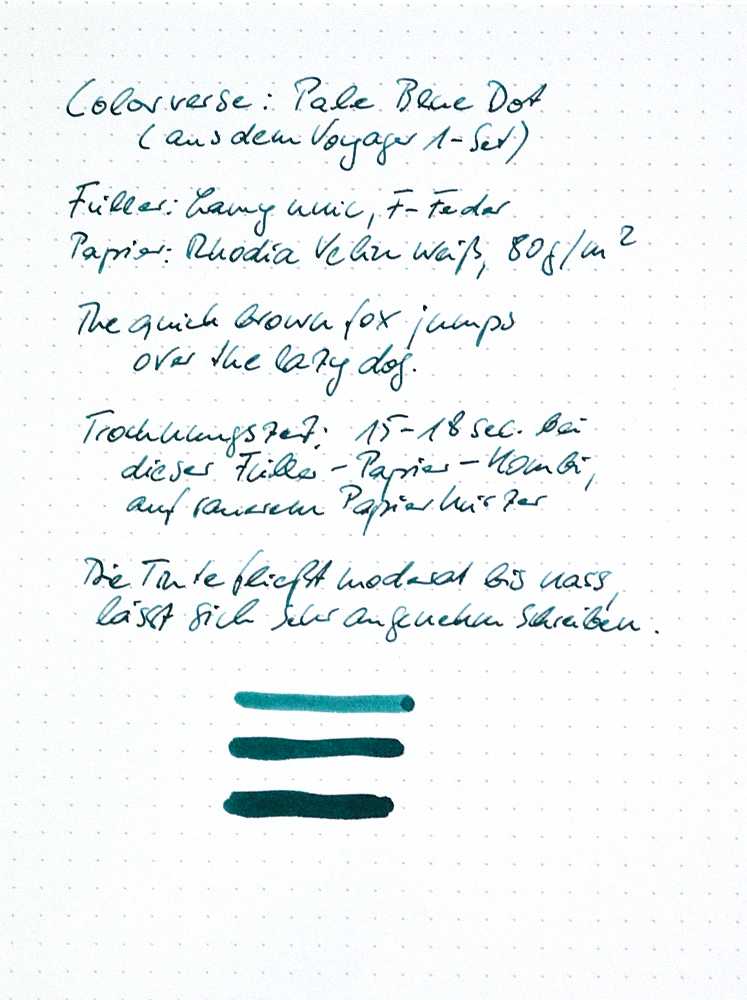 Colorverse: Pale Blue Dot
(aus dem Voyager 1-Set)
Füller: Lamy unic, F-Feder
Papier: Rhodia Velin weiß, 80g/m²
The quick brown fox jumps
over the lazy dog.
Trocknungszeit: 15-18 sec. bei
dieser Füller-Papier-Kombi,
auf rauerem Papier kürzer
Die Tinte fließt moderat bis nass,
lässt sich sehr angenehm schreiben.